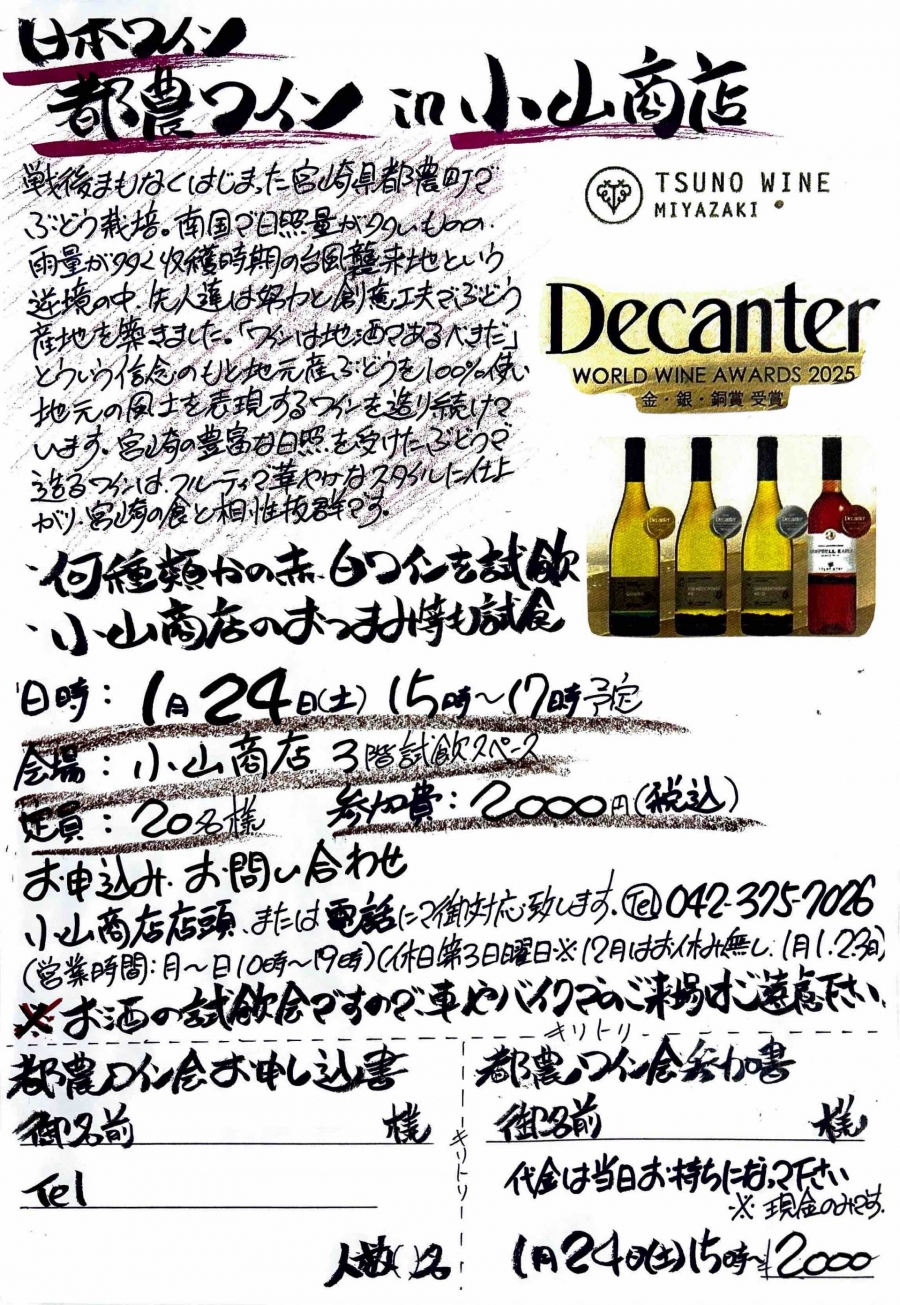 日本ワイン
都農ワイン in 小山商店
戦後まもなくはじまった宮崎県都農町で
ぶどう栽培。南国で日照量が多いものの、
雨量が多く収穫時期の台風襲来地という
逆境の中、先人達は努力と創意工夫でぶどう
産地を築きました。「ワインは地酒であるべきだ」
とういう信念のもと地元産ぶどうを100%使い
地元の風土を表現するワインを造り続けて
います。宮崎の豊富な日照を受けたぶどうで
造るワインは、フルーティで華やかなスタイルに仕上
がり、宮崎の食と相性抜群です。
TSUNO WINE
MIYAZAKI
Decanter
WORLD WINE AWARDS 2025
金・銀・銅賞 受賞
・何種類かの赤、白ワインを試飲
・小山商店のおつまみ等も試食
日時：1月24日(土) 15時〜17時予定
会場：小山商店 3階試飲スペース
定員：20名様 参加費：2000円(税込)
お申込み、お問い合わせ
小山商店店頭、または電話にて御対応致します。Tel 042-375-7026
(営業時間：月〜日10時〜19時)(休日第3日曜日※12月はお休み無し、1月1.2.3日)
※お酒の試飲会ですので、車やバイクでのご来場はご遠慮下さい。
キリトリ
都農ワイン会お申し込書
御名前 様
Tel
人数( )名
キリトリ
都農ワイン会参加書
御名前 様
代金は当日お持ちになって下さい
※現金のみです。
1月24日(土)15時〜 ¥2000